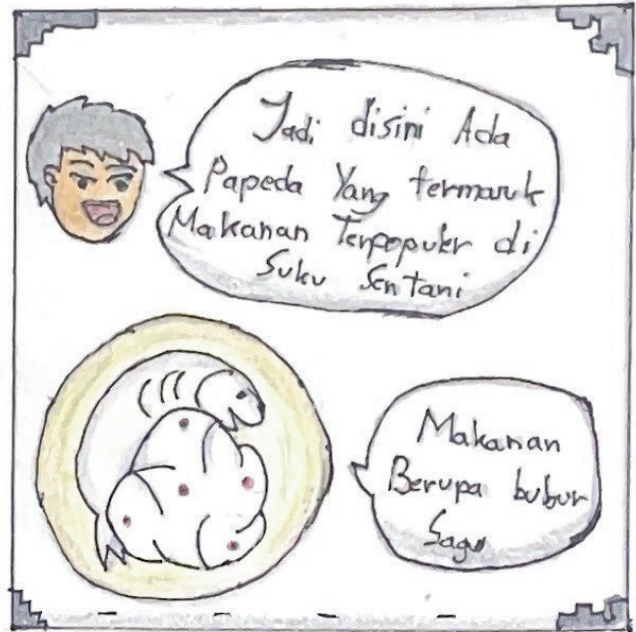 Jadi disini Ada
Papeda Yang termasuk
Makanan Terpopuler di
Suku Sentani
Makanan
Berupa bubur
Sagu